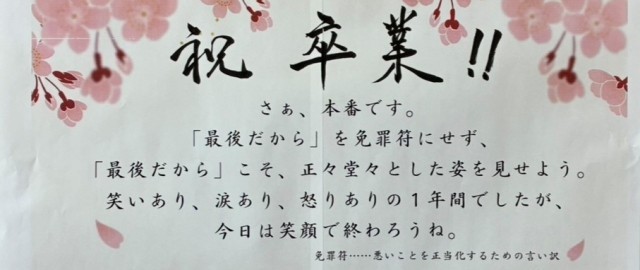 祝 卒業!!
さぁ、本番です。
「最後だから」を免罪符にせず、
「最後だから」こそ、正々堂々とした姿を見せよう。
笑いあり、涙あり、怒りありの1年間でしたが、
今日は笑顔で終わろうね。
免罪符……悪いことを正当化するための言い訳